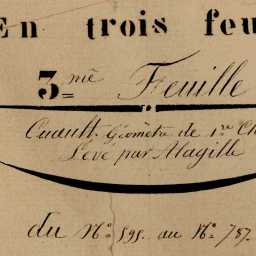 En trois feu
3.me Feuille
Géomètre de 1.re Cl
Levé par Magille
du N.o 595. au N.o 787.